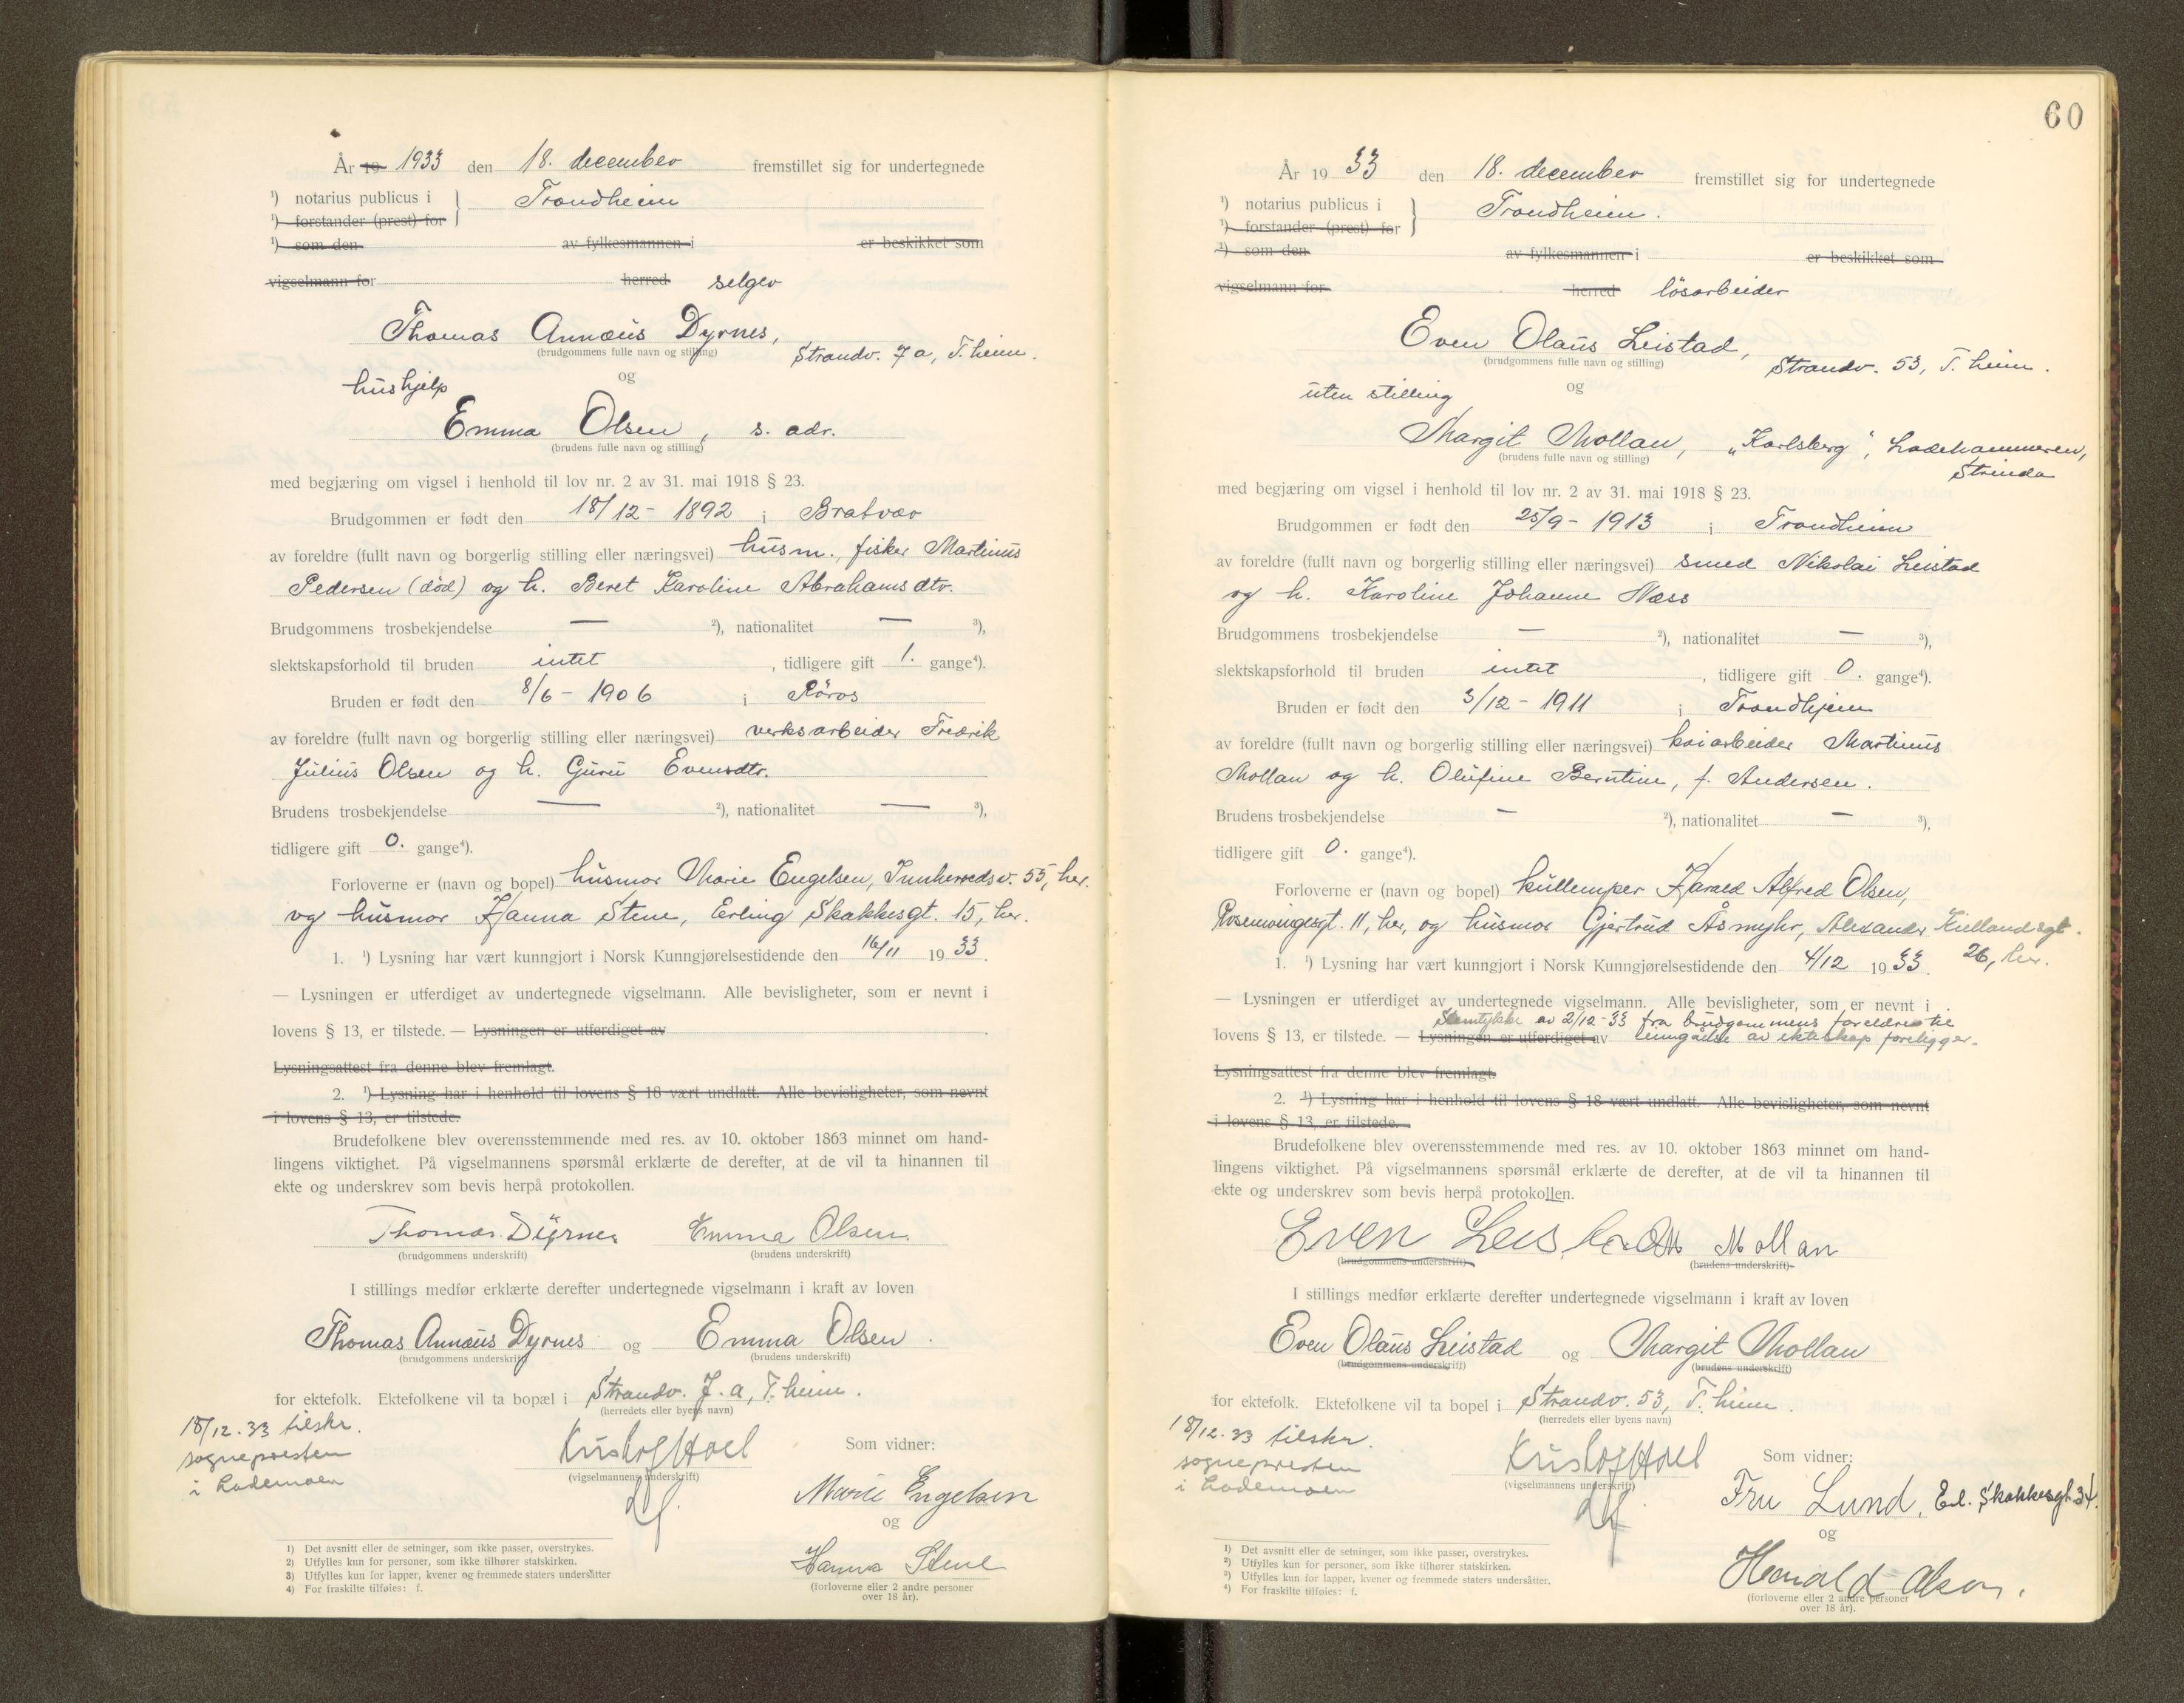 År 19 1933 den 18. december fremstillet sig for undertegnede
¹) notarius publicus i Trondheim
¹) forstander (prest) for
¹) som den av fylkesmannen i er beskikket som
vigselmann for herred selger
Thomas Annæus Dyrnes, Strandv. 7a, T.heim.
(brudgommens fulle navn og stilling)
og
hushjelp
Emma Olsen, s. adr.
(brudens fulle navn og stilling)
med begjæring om vigsel i henhold til lov nr. 2 av 31. mai 1918 § 23.
Brudgommen er født den 18/12 - 1892 i Bratvær
av foreldre (fullt navn og borgerlig stilling eller næringsvei) husm., fisker Martinus
Pedersen (död) og h. Beret Karoline Abrahamsdtr.
Brudgommens trosbekjendelse — ²), nationalitet — ³),
slektskapsforhold til bruden intet, tidligere gift 1. gange⁴).
Bruden er født den 8/6 - 1906 i Röros
av foreldre (fullt navn og borgerlig stilling eller næringsvei) verksarbeider Fredrik
Julius Olsen og h. Guru Evensdtr.
Brudens trosbekjendelse — ²), nationalitet — ³),
tidligere gift 0. gange⁴).
Forloverne er (navn og bopel) husmor Marie Engelsen, Innherredsv. 55, her.
og husmor Hanna Stene, Erling Skakkesgt. 15, her.
1. ¹) Lysning har vært kunngjort i Norsk Kunngjørelsestidende den 16/11 1933.
— Lysningen er utferdiget av undertegnede vigselmann. Alle bevisligheter, som er nevnt i
lovens § 13, er tilstede. — Lysningen er utferdiget av .
Lysningsattest fra denne blev fremlagt.
2. ¹) Lysning har i henhold til lovens § 18 vært undlatt. Alle bevisligheter, som nevnt
i lovens § 13, er tilstede.
Brudefolkene blev overensstemmende med res. av 10. oktober 1863 minnet om hand-
lingens viktighet. På vigselmannens spørsmål erklærte de derefter, at de vil ta hinannen til
ekte og underskrev som bevis herpå protokollen.
Thomas Dyrnes Emma Olsen.
(brudgommens underskrift) (brudens underskrift)
I stillings medfør erklærte derefter undertegnede vigselmann i kraft av loven
Thomas Annæus Dyrnes og Emma Olsen.
(brudgommens underskrift) (brudens underskrift)
for ektefolk. Ektefolkene vil ta bopæl i Strandv. 7.a, T.heim.
(herredets eller byens navn)
18/12.33 tilskr.
sognepresten
i Lademoen
Kristof Hoel
(vigselmannens underskrift)
Som vidner:
Marie Engelsen
og
Hanna Stene
(forloverne eller 2 andre personer
over 18 år).
1) Det avsnitt eller de setninger, som ikke passer, overstrykes.
2) Utfylles kun for personer, som ikke tilhører statskirken.
3) Utfylles kun for lapper, kvener og fremmede staters undersåtter
4) For fraskilte tilføies: f.
60
År 1933 den 18. december fremstillet sig for undertegnede
¹) notarius publicus i Trondheim.
¹) forstander (prest) for
¹) som den av fylkesmannen i er beskikket som
vigselmann for herred lösarbeider
Even Olaus Leistad, Strandv. 53, T.heim.
(brudgommens fulle navn og stilling)
og
uten stilling
Margit Mollan, „Karlsberg“, Ladehammeren,
Strinda
(brudens fulle navn og stilling)
med begjæring om vigsel i henhold til lov nr. 2 av 31. mai 1918 § 23.
Brudgommen er født den 25/9 - 1913 i Trondheim
av foreldre (fullt navn og borgerlig stilling eller næringsvei) smed Nikolai Leistad
og h. Karoline Johanne Næss
Brudgommens trosbekjendelse — ²), nationalitet — ³),
slektskapsforhold til bruden intet, tidligere gift 0. gange⁴).
Bruden er født den 3/12 - 1911 i Trondhjem
av foreldre (fullt navn og borgerlig stilling eller næringsvei) kaiarbeider Martinus
Mollan og h. Olufine Berntine, f. Andersen.
Brudens trosbekjendelse — ²), nationalitet — ³),
tidligere gift 0. gange⁴).
Forloverne er (navn og bopel) kullemper Harald Alfred Olsen,
Rosenvingesgt. 11, her, og husmor Gjertrud Åsmyhr, Alexander Kiellandsgt.
26, her.
1. ¹) Lysning har vært kunngjort i Norsk Kunngjørelsestidende den 4/12 1933.
— Lysningen er utferdiget av undertegnede vigselmann. Alle bevisligheter, som er nevnt i
Samtykke av 2/12-33 fra brudgommens foreldre til
lovens § 13, er tilstede. — Lysningen er utferdiget av inngåelse av ekteskap foreligger.
Lysningsattest fra denne blev fremlagt.
2. ¹) Lysning har i henhold til lovens § 18 vært undlatt. Alle bevisligheter, som nevnt
i lovens § 13, er tilstede.
Brudefolkene blev overensstemmende med res. av 10. oktober 1863 minnet om hand-
lingens viktighet. På vigselmannens spørsmål erklærte de derefter, at de vil ta hinannen til
ekte og underskrev som bevis herpå protokollen.
Even Leistad M Mollan
(brudgommens underskrift) (brudens underskrift)
I stillings medfør erklærte derefter undertegnede vigselmann i kraft av loven
Even Olaus Leistad og Margit Mollan
(brudgommens underskrift) (brudens underskrift)
for ektefolk. Ektefolkene vil ta bopel i Strandv. 53, T.heim.
(herredets eller byens navn)
18/12.33 tilskr.
sognepresten
i Lademoen
Kristof Hoel
(vigselmannens underskrift)
Som vidner:
Fru Lund, Erl. Skakkesgt. 34.
og
Harald Olsen.
(forloverne eller 2 andre personer
over 18 år).
1) Det avsnitt eller de setninger, som ikke passer, overstrykes.
2) Utfylles kun for personer, som ikke tilhører statskirken.
3) Utfylles kun for lapper, kvener og fremmede staters undersåtter.
4) For fraskilte tilføies: f.